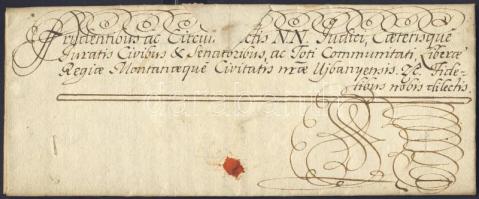 Prudentibus ac Circu ctis NN. Judici, Cæterisque
Juratis Civibus & Senatoribus, ac Toti Communitati, Liberæ
Regiæ Montanæque Civitatis nræ Ujbanyensis. &c. Fide-
libus nobis dilectis